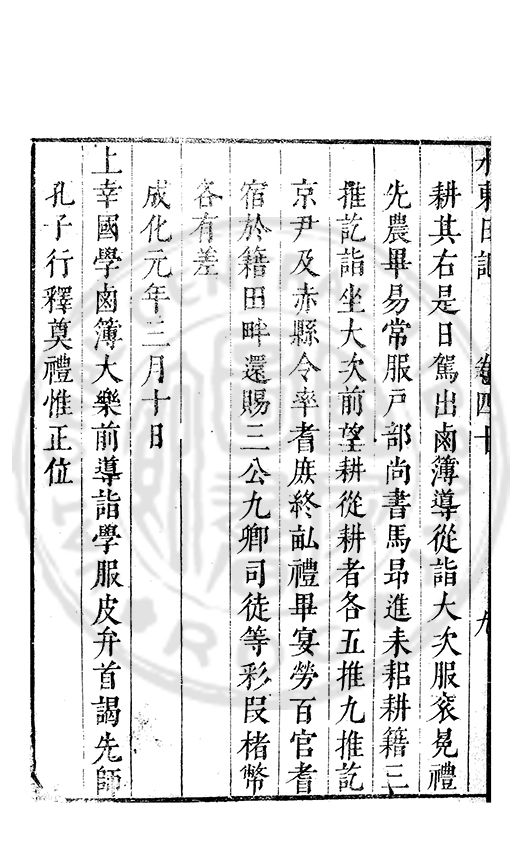 水東日記 卷四十 九
耕其右是日駕出鹵簿導從詣大次服衮冕禮
先農畢易常服戶部尚書馬昂進耒耜耕籍三
推訖詣坐大次前望耕從耕者各五推九推訖
京尹及赤縣令率耆庶終畝禮畢宴勞百官耆
宿於籍田畔還賜三公九卿司徒等彩段楮幣
各有差
成化元年三月十日
上幸國學鹵簿大樂前導詣學服皮弁首謁先師
孔子行釋奠禮惟正位